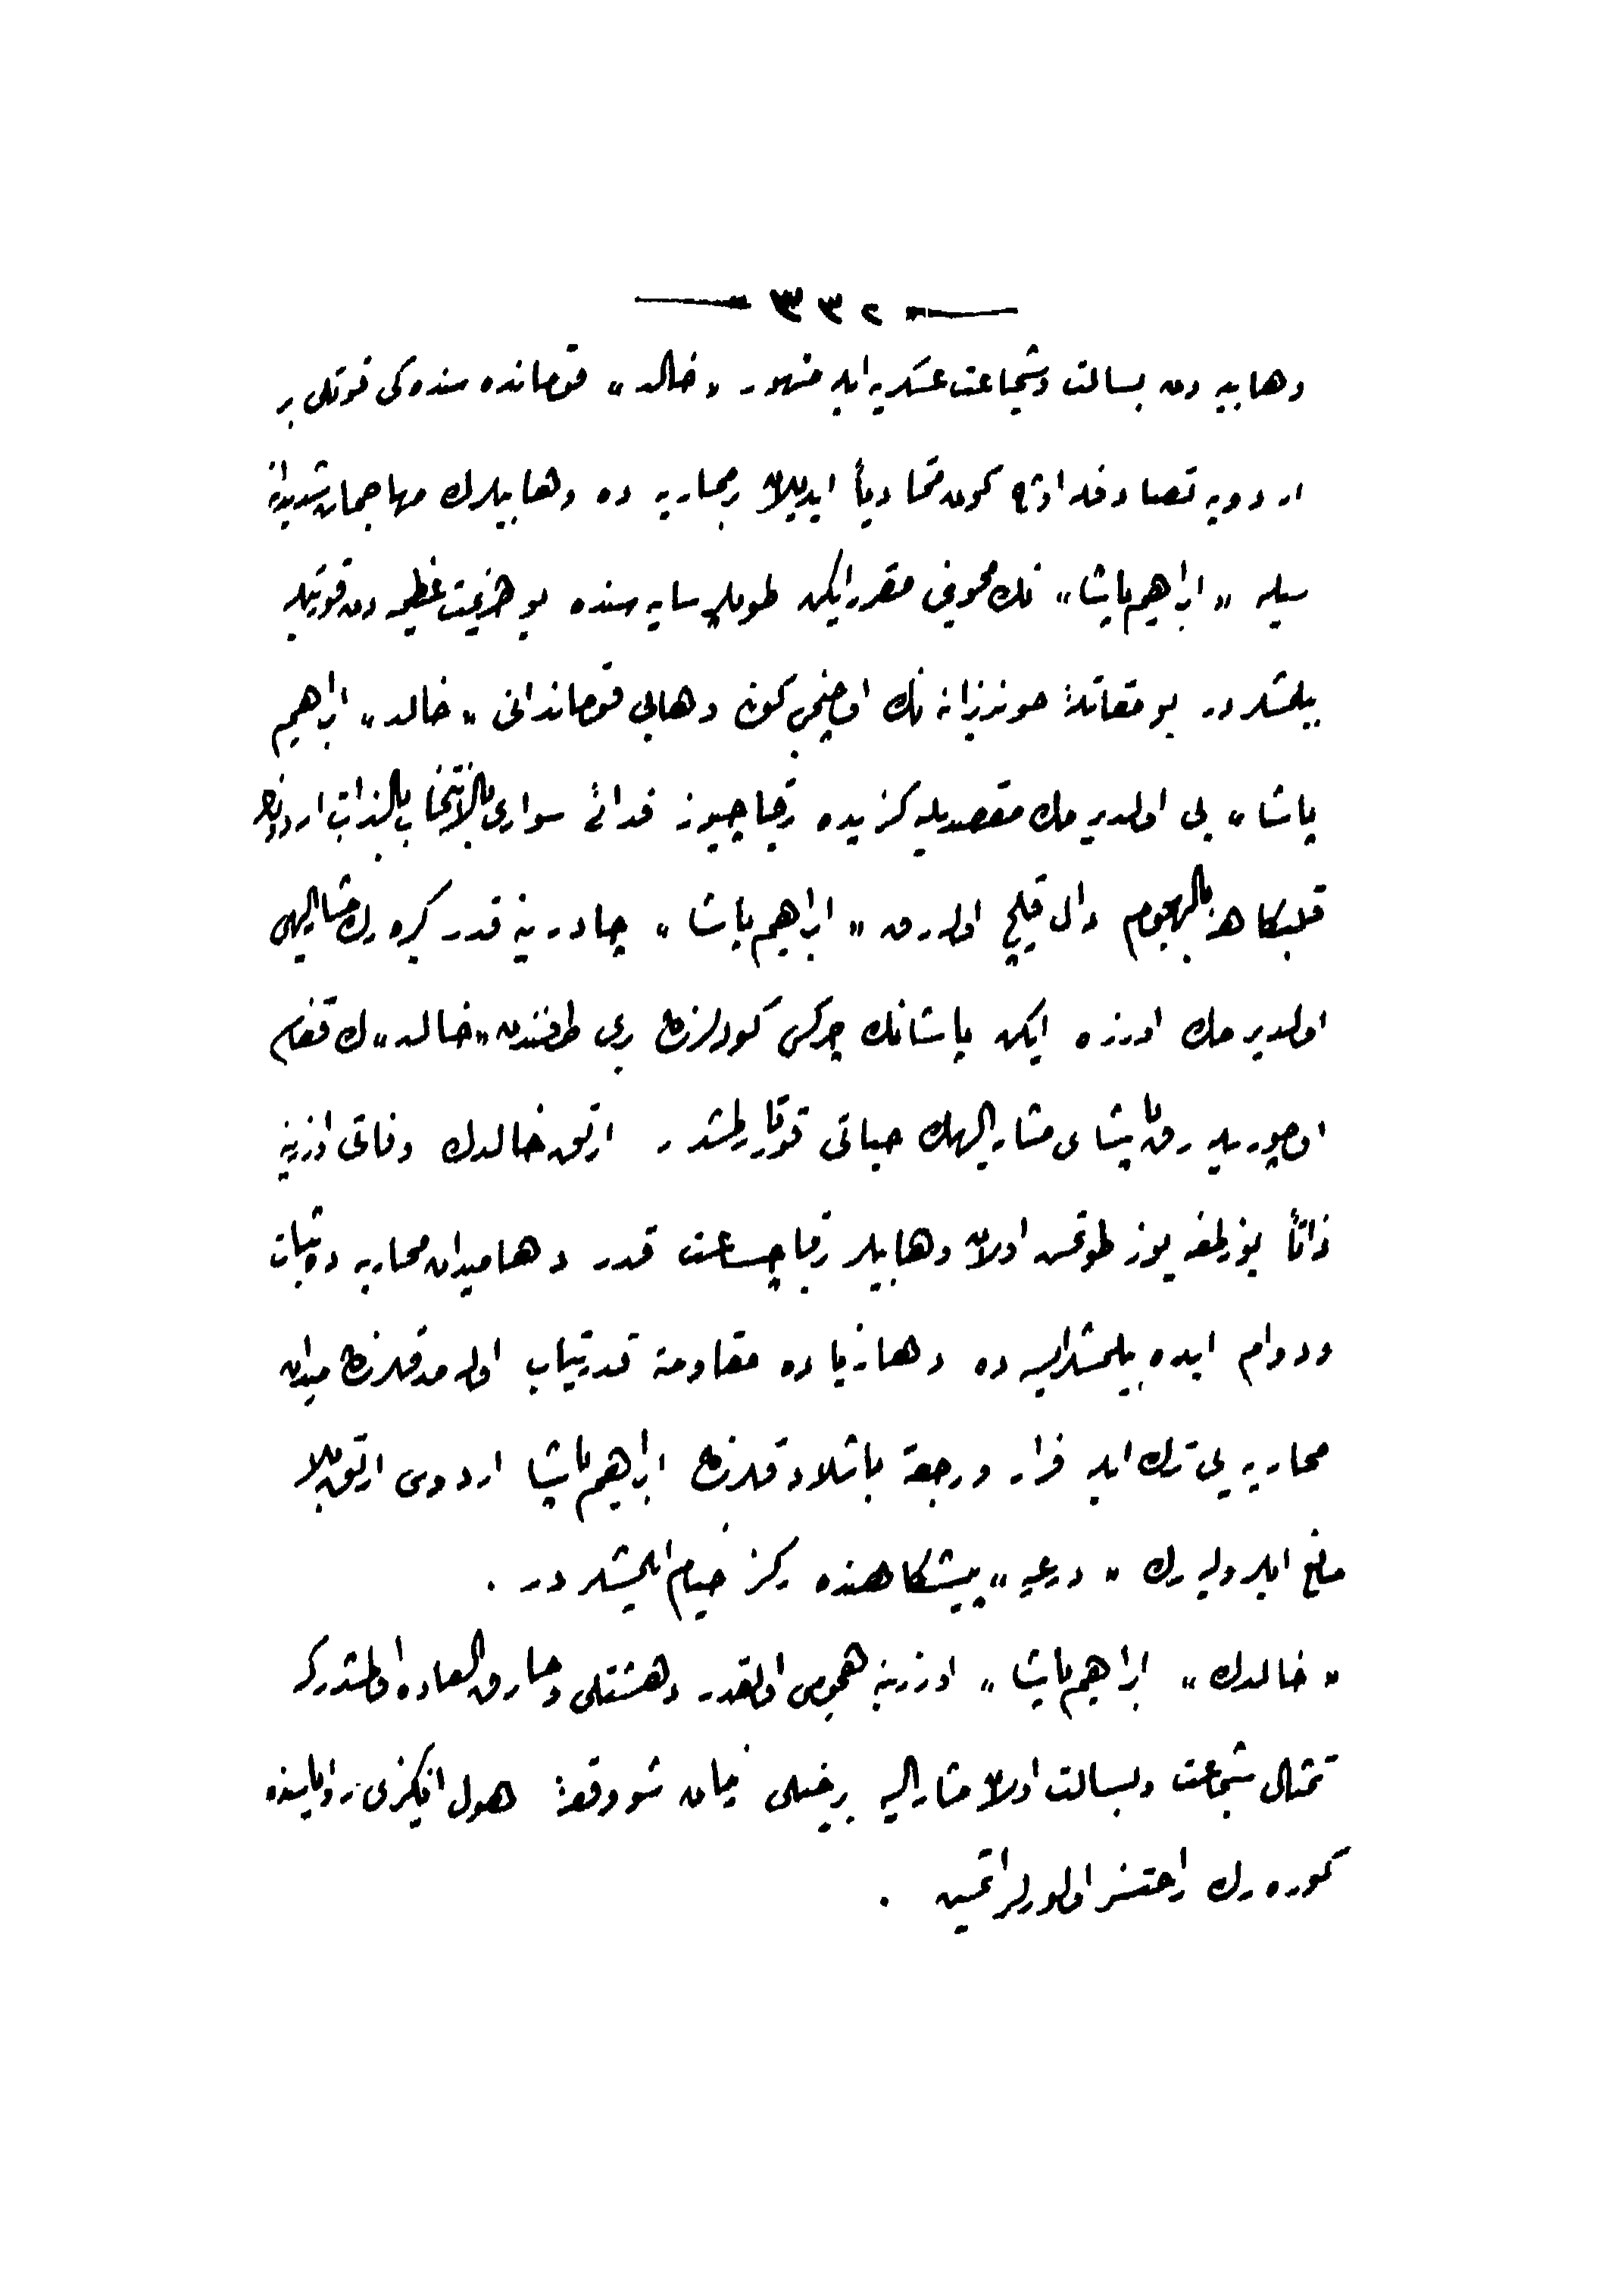 — ٣٣٢ —
وهابیه دن بسالت وشجاعت عسكریه ایله مشهور «خالد» قومانده سنده كی قوتلی بر
اردویه تصادفله اوچ كون متمادیاً ایدیلان محاربه ده وهابیلرك مهاجمات شدیدانه
سیله «ابراهیم پاشا» نك محوی مقرر ایكن طوپلر سایه سنده بو هزیمت عظیمه دن قورتیله
بیلمشلردر. بو مقاتلهٔ خونریزانه نك اوچنجی كونی وهابی قوماندانی «خالد» ابراهیم
پاشا» یی اولدیرمك مقصدیله كزیده برقاچیوز فدائی سواری بالانتخاب بالذات اردونك
قلبكاهنه بالهجوم دال قلیچ اوله رق «ابراهیم پاشا» چادرینه قدر كیره رك مشارالیهی
اولدیرمك اوزره ایكن پاشانك چركس كوله لرندن بری طرفندن «خالد» ك قفاسی
اوچوریله رق پاشای مشارالیهك حیاتی قورتارلمشدر. ارتق خالدك وفاتی اوزرینه
ذاتاً بوزلمغه یوز طوتمش اولان وهابیلر برقاچ ساعت قدر دها میدان محاربه ده ثبات
ودوام ایده بیلمشلر ایسه ده دها زیاده مقاومته قدرتیاب اوله مدقلرندن میدان
محاربه یی ترك ایله فرار ورجعته باشلادقلرندن ابراهیم پاشا اردوسی ارتق بلا
مانع ایلرولیه رك «درعیه» پیشكاهنده ركز خیام ایلمشلردر.
«خالدك» ابراهیم پاشا» اوزرینه هجومی اولقدر دهشتلی وخارق العاده اولمشدركه
تمثال شجاعت وبسالت اولان مشارالیه برخیلی زمان شو وقعهٔ هول انكیزی رؤیاسنده
كوره رك راحتسز اولورلر ایمش.